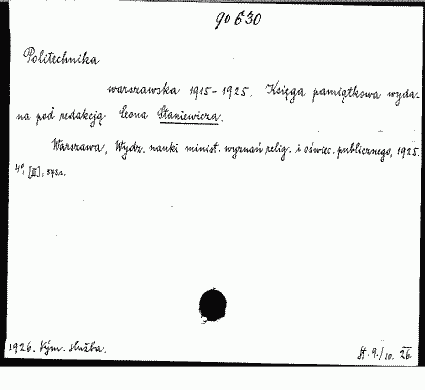 90 630
Politechnika
warszawska 1915-1925. Księga pamiątkowa wyda-
na pod redakcją Leona Staniewicza.
Warszawa, Wydz. nauki minist. wyznań relig. i oświec. publicznego, 1925.
4º, [II], 343 s.
1926. Vým. služba.
St. 9./10. 26.